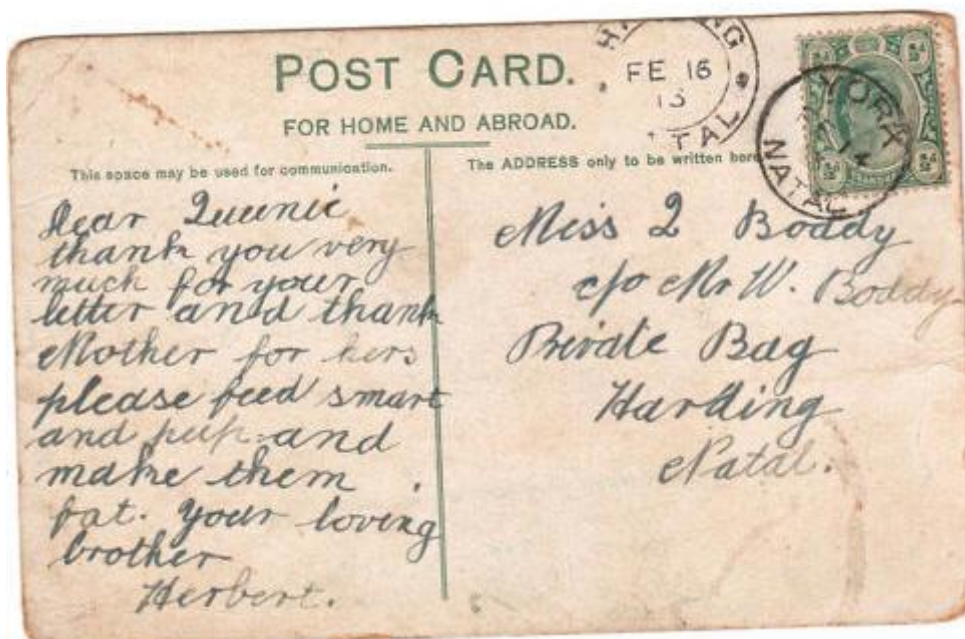 POST CARD.
FOR HOME AND ABROAD.
This space may be used for communication.
The ADDRESS only to be written here
HARDING
FE 16
13
NATAL
YORK
NATAL
Dear Queenie
thank you very
much for your
letter and thank
Mother for hers
please feed smart
and peep and
make them
fat. your loving
brother
Herbert.
Miss Q Boddy
c/o Mr W. Boddy
Private Bag
Harding
Natal.